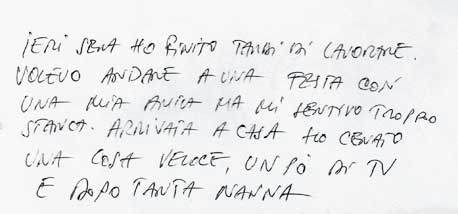 IERI SERA HO FINITO TARDI DI LAVORARE.
VOLEVO ANDARE A UNA FESTA CON
UNA MIA AMICA MA MI SENTIVO TROPPO
STANCA. ARRIVATA A CASA HO CENATO
UNA COSA VELOCE, UN PÒ DI TV
E DOPO TANTA NANNA